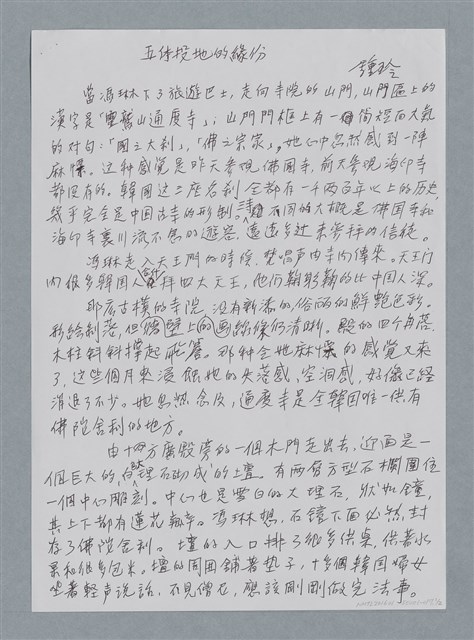 五体投地的緣份
鍾玲
當馮琳下了旅遊巴士，走向寺院的山門，山門匾上的
漢字是「靈鷲山通度寺」；山門門框上有一個簡短而大氣
的对句：「國之大刹」，「佛之宗家」。她心中忽然感到一陣
麻慄。这种感覚是昨天參观佛國寺，前天參观海印寺
都没有的。韓國这三座名刹全都有一千兩百年以上的历史，
幾乎完全是中國古寺的形制。不同的大概是佛国寺和
海印寺裏川流不息的遊客，遠遠多过來參拜的信徒。
馮琳走入天王門的時候，梵唄声由寺内傳來。天王门
内很多韓國人拜四大天王，他们鞠躬鞠的比中国人深。
那座古樸的寺院，没有新漆的，俗丽的鮮艷色彩。
彩绘剥落，但牆壁上的画綫條仍清晰。殿的四个角落，
木柱斜斜撑起飛簷。那种令她麻慄的感覚又來
了，这些個月來浸蝕她的失落感、空洞感，好像已経
消退了不少。她忽然念及，通度寺是全韓国唯一供有
佛陀舍利的地方。
由十四方廣殿旁的一個木門走出去，迎面是一
個巨大的，白大理石砌成的土壇。有两层方型石欄圍住
一個中心雕刻。中心也是雪白的大理石，狀如鐘，
其上下都有蓮花執幸。馮琳想，石鐘下面必然封
存了佛陀舍利。壇的入口排了很多供桌，供着水
果和很多包米。壇的周圍舖着垫子，十多個韓国婦女
坐着輕声说話，不見僧侣，應該剛剛做完法事。